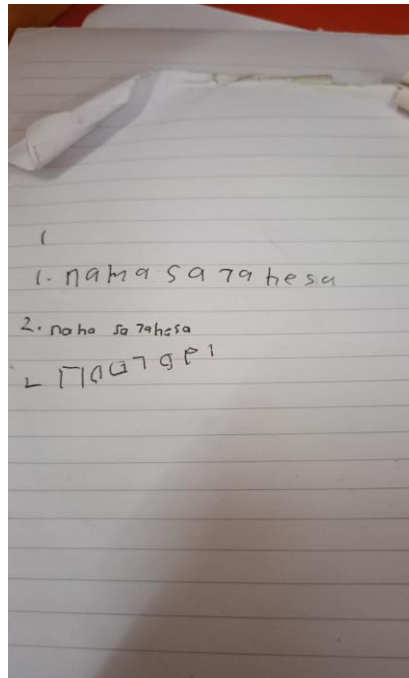 (
1. nama sa ya hesa
2. naha sa yahesa